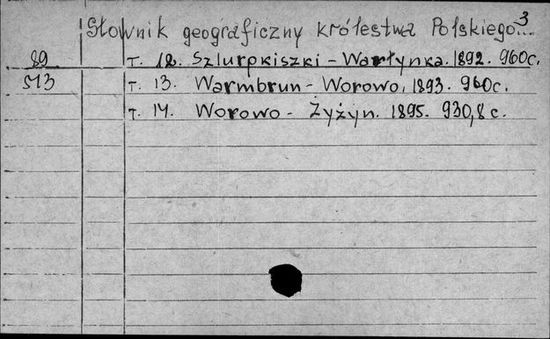 Słownik geograficzny królestwa Polskiego... 3
89 т. 12. Szlurpkiszki - Warłynka. 1892. 960с.
513 т. 13. Warmbrun - Worowo, 1893. 960с.
т. 14. Worowo - Żyżyn. 1895. 930,8 с.